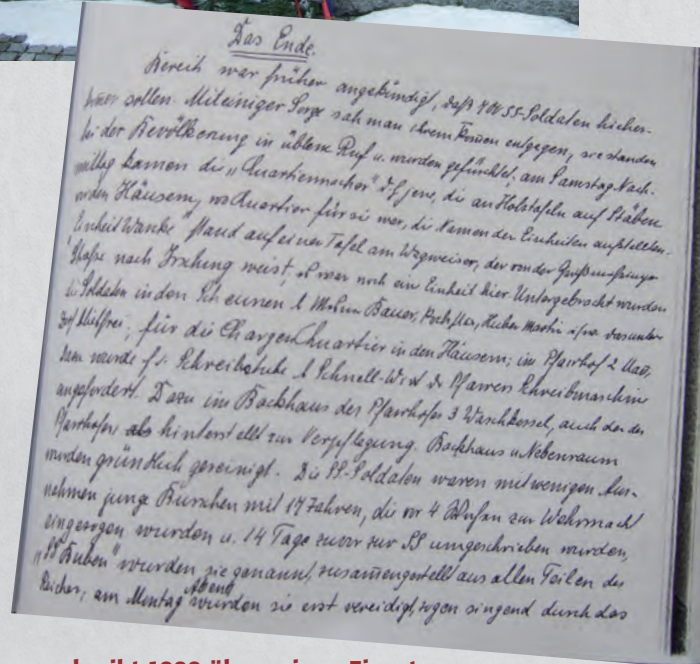 Das Ende.
Bereits war früher angekündigt, daß 400 SS-Soldaten hieher-
kommen sollen. Mit einiger Sorge sah man ihrem Kommen entgegen, sie standen
bei der Bevölkerung in üblem Ruf u. wurden gefürchtet; am Samstag Nach-
mittag kamen die "Quartiermacher" d. h. jene, die an Holztafeln auf Stäben
vor den Häusern, wo Quartier für sie war, die Namen der Einheiten aufstellten.
Einheit Wanke stand auf einer Tafel am Wegweiser, der von der
Straße nach Irching weist, es war noch ein Einheit hier. Untergebracht wurden
die Soldaten in den Scheunen b. Bauer, Huber Martin
für die Chargen Quartier in den Häusern; im Pfarrhof 2
dazu wurde f. d. Schreibstube b. Schnell-Wirt des Pfarrers Schreibmaschine
angefordert. Dazu im Backhaus des Pfarrhofes 3 Waschkessel, auch der des
Pfarrhofes als hinterstellt zur Verpflegung. Backhaus u. Nebenraum
wurden gründlich gereinigt. Die SS-Soldaten waren mit wenigen Aus-
nahmen junge Burschen mit 17 Jahren, die vor 4 Wochen zur Wehrmacht
eingezogen wurden u. 14 Tage zuvor zur SS umgeschrieben wurden,
"SS Buben" wurden sie genannt, zusammengestellt aus allen Teilen des
Reiches, am Montag Abend wurden sie erst vereidigt, zogen singend durch das